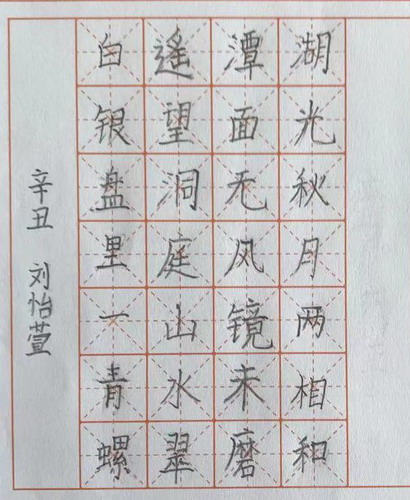 湖光秋月两相和
潭面无风镜未磨
遥望洞庭山水翠
白银盘里一青螺
辛丑 刘怡萱